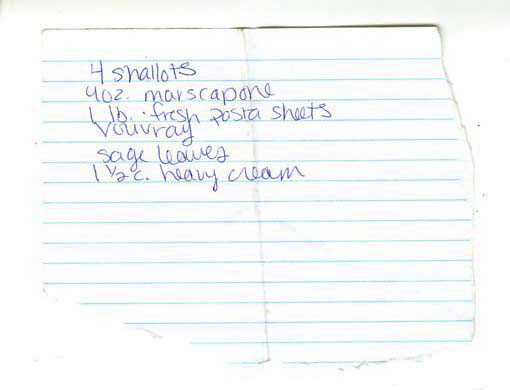 4 shallots
4oz. marscapone
1 lb. fresh pasta sheets
Vouvray
sage leaves
1 1/2 c. heavy cream